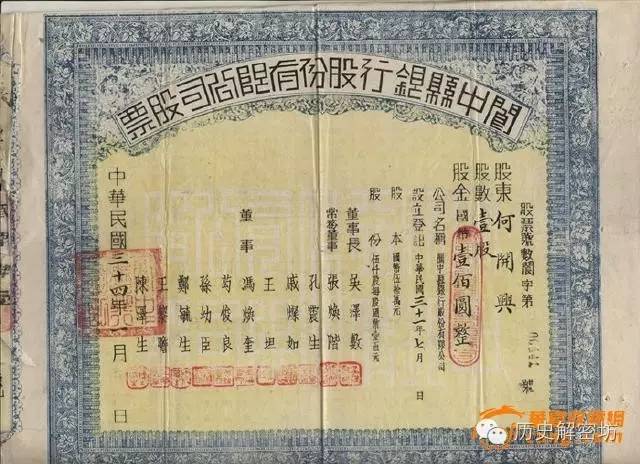 閬中縣銀行股份有限公司股票
股票票數閬字第 號
股東 何開興
股數 壹股
股金 國幣壹佰圓整
公司名稱 閬中縣銀行股份有限公司
設立登記 中華民國三十一年七月 日
股本 國幣伍拾萬元
股份 伍仟股每股國幣壹百元
董事長 吳澤敷
常務董事 張煥階
孔震生
戚燦如
王坦
董事 馮煥奎
苟俊良
徐幼臣
鄭毓生
王
陳澤生
中華民國三十四年 月 日
历史解密坊